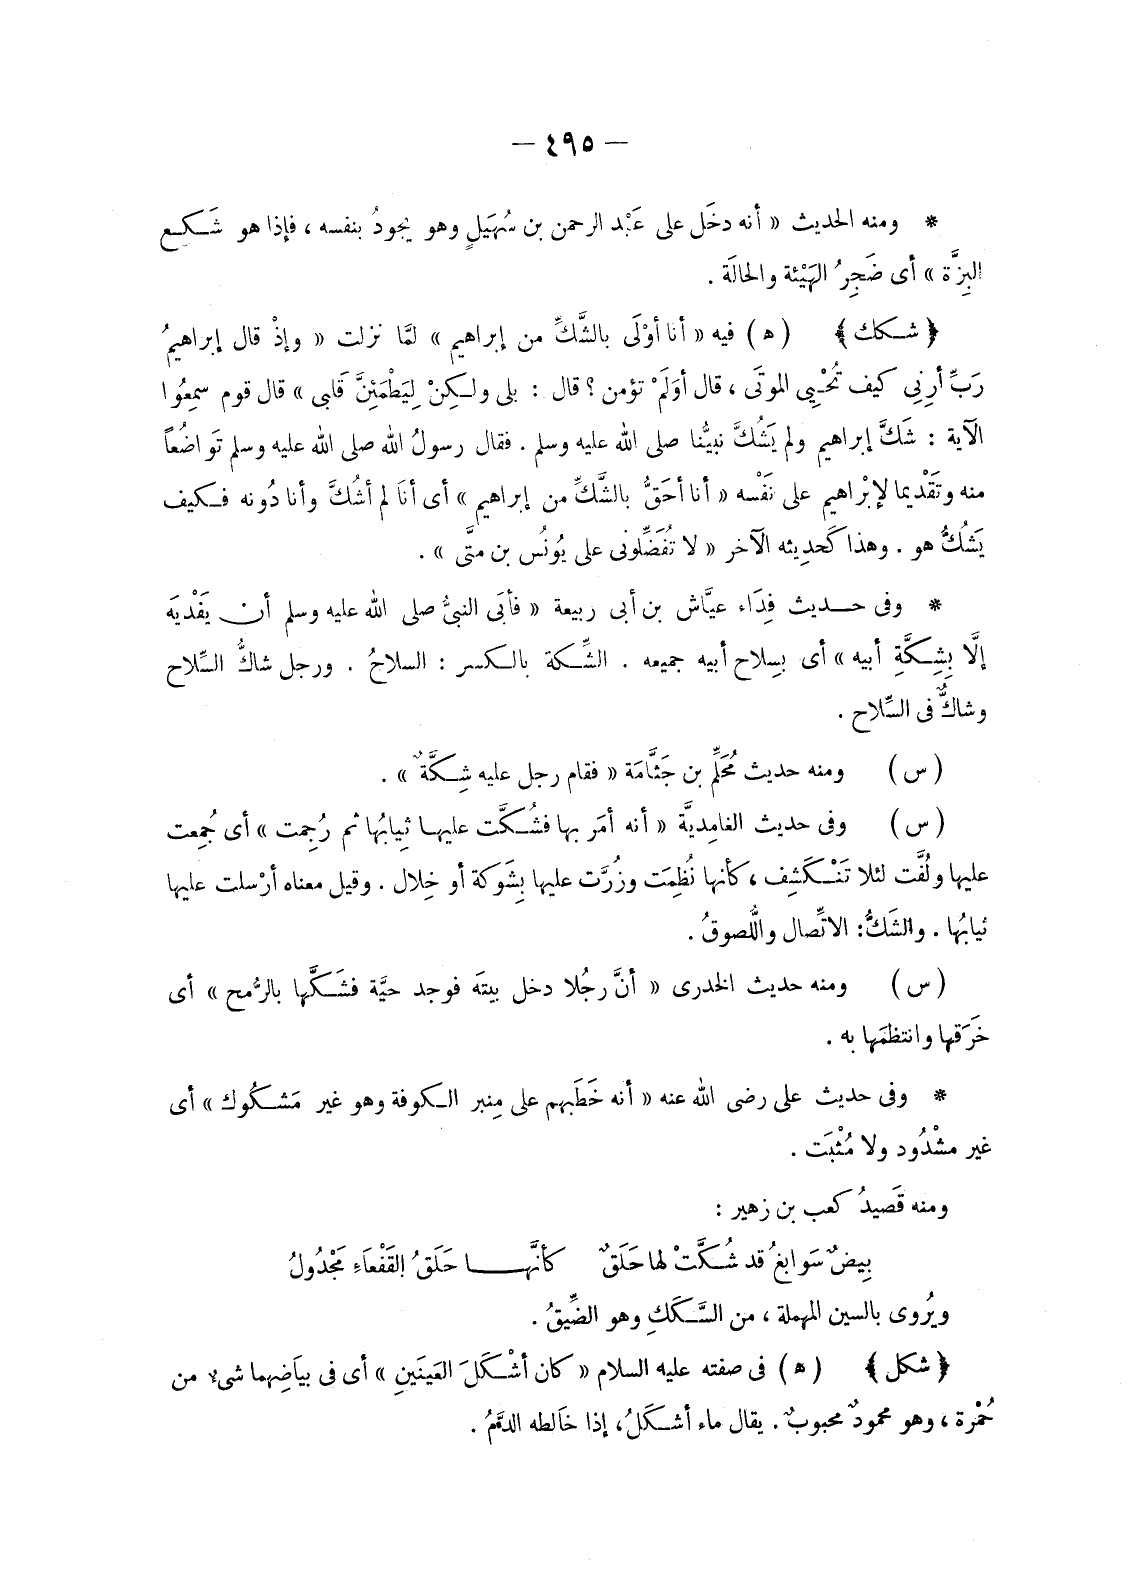 — ٤٩٥ —
* ومنه الحديث « أنه دخَل على عَبْد الرحمن بن سُهَيلٍ وهو يجودُ بنفسه ، فإذا هو شَكِع
البِزَّة » أى ضَجِرُ الهَيْئة والحالَة .
﴿ شكك ﴾ ( ه ) فيه « أنا أوْلَى بالشَّكِّ من إبراهيم » لمَّا نزلت « وإذْ قال إبراهيمُ
رَبِّ أرِنِى كيف تُحْيِى الموتَى ، قال أوَلَمْ تؤمن ؟ قال : بلى ولكِنْ لِيَطْمَئِنَّ قَلبى » قال قوم سمِعُوا
الآية : شَكَّ إبراهيم ولم يَشُكَّ نبيُّنا صلى الله عليه وسلم . فقال رسولُ الله صلى الله عليه وسلم تَواضُعاً
منه وتَقْديما لإبْراهيم على نَفْسه « أنا أحَقُّ بالشَّكِّ من إبراهيم » أى أنَا لم أشُكَّ وأنا دُونه فكيف
يَشُكُّ هو . وهذا كَحديثه الآخر « لا تُفَضِّلونى على يُونُس بن متَّى » .
* وفى حديث فِدَاء عيَّاش بن أبى ربيعة « فأبَى النبىُّ صلى الله عليه وسلم أن يَفْديَه
إلَّا بِشِكَّةِ أبيه » أى بسِلاح أبيه جميعه . الشِّكة بالكسر : السلاحُ . ورجل شاكُّ السِّلاح
وشاكٌّ فى السِّلاح .
( س ) ومنه حديث مُحَلِّم بن جَثَّامَة « فقام رجل عليه شِكَّةٌ » .
( س ) وفى حديث الغامِديَّة « أنه أمَر بها فشُكَّت عليها ثِيابُها ثم رُجِمت » أى جُمِعت
عليها ولُفَّت لئلا تَنْكَشِف ، كأنها نُظِمَت وزُرَّت عليها بِشَوكة أو خِلال . وقيل معناه أرْسلت عليها
ثيابُها . والشَكُّ : الاتِّصال واللُّصوقُ .
( س ) ومنه حديث الخدرى « أنَّ رجُلا دخل بيتَه فوجد حيَّة فشَكَّها بالرُّمح » أى
خَرَقها وانتظمَها به .
* وفى حديث على رضى الله عنه « أنه خَطَبهم على مِنبر الكوفة وهو غير مَشكُوك » أى
غير مشْدُود ولا مُثْبَت .
ومنه قَصيدُ كعب بن زهير :
بِيضٌ سَوابغُ قد شُكَّتْ لها حَلَقٌ كأنَّها حَلَقُ القَفْعاَءِ مَجْدُولُ
ويُروى بالسين المهملة ، من السَّكَكِ وهو الضِّيقُ .
﴿ شكل ﴾ ( ه ) فى صفته عليه السلام « كان أشْكَلَ العَينَينِ » أى فى بيَاَضِهما شىء من
حُمْرة ، وهو محمودٌ محبوبٌ . يقال ماء أشكَلُ ، إذا خَالطه الدمُ .